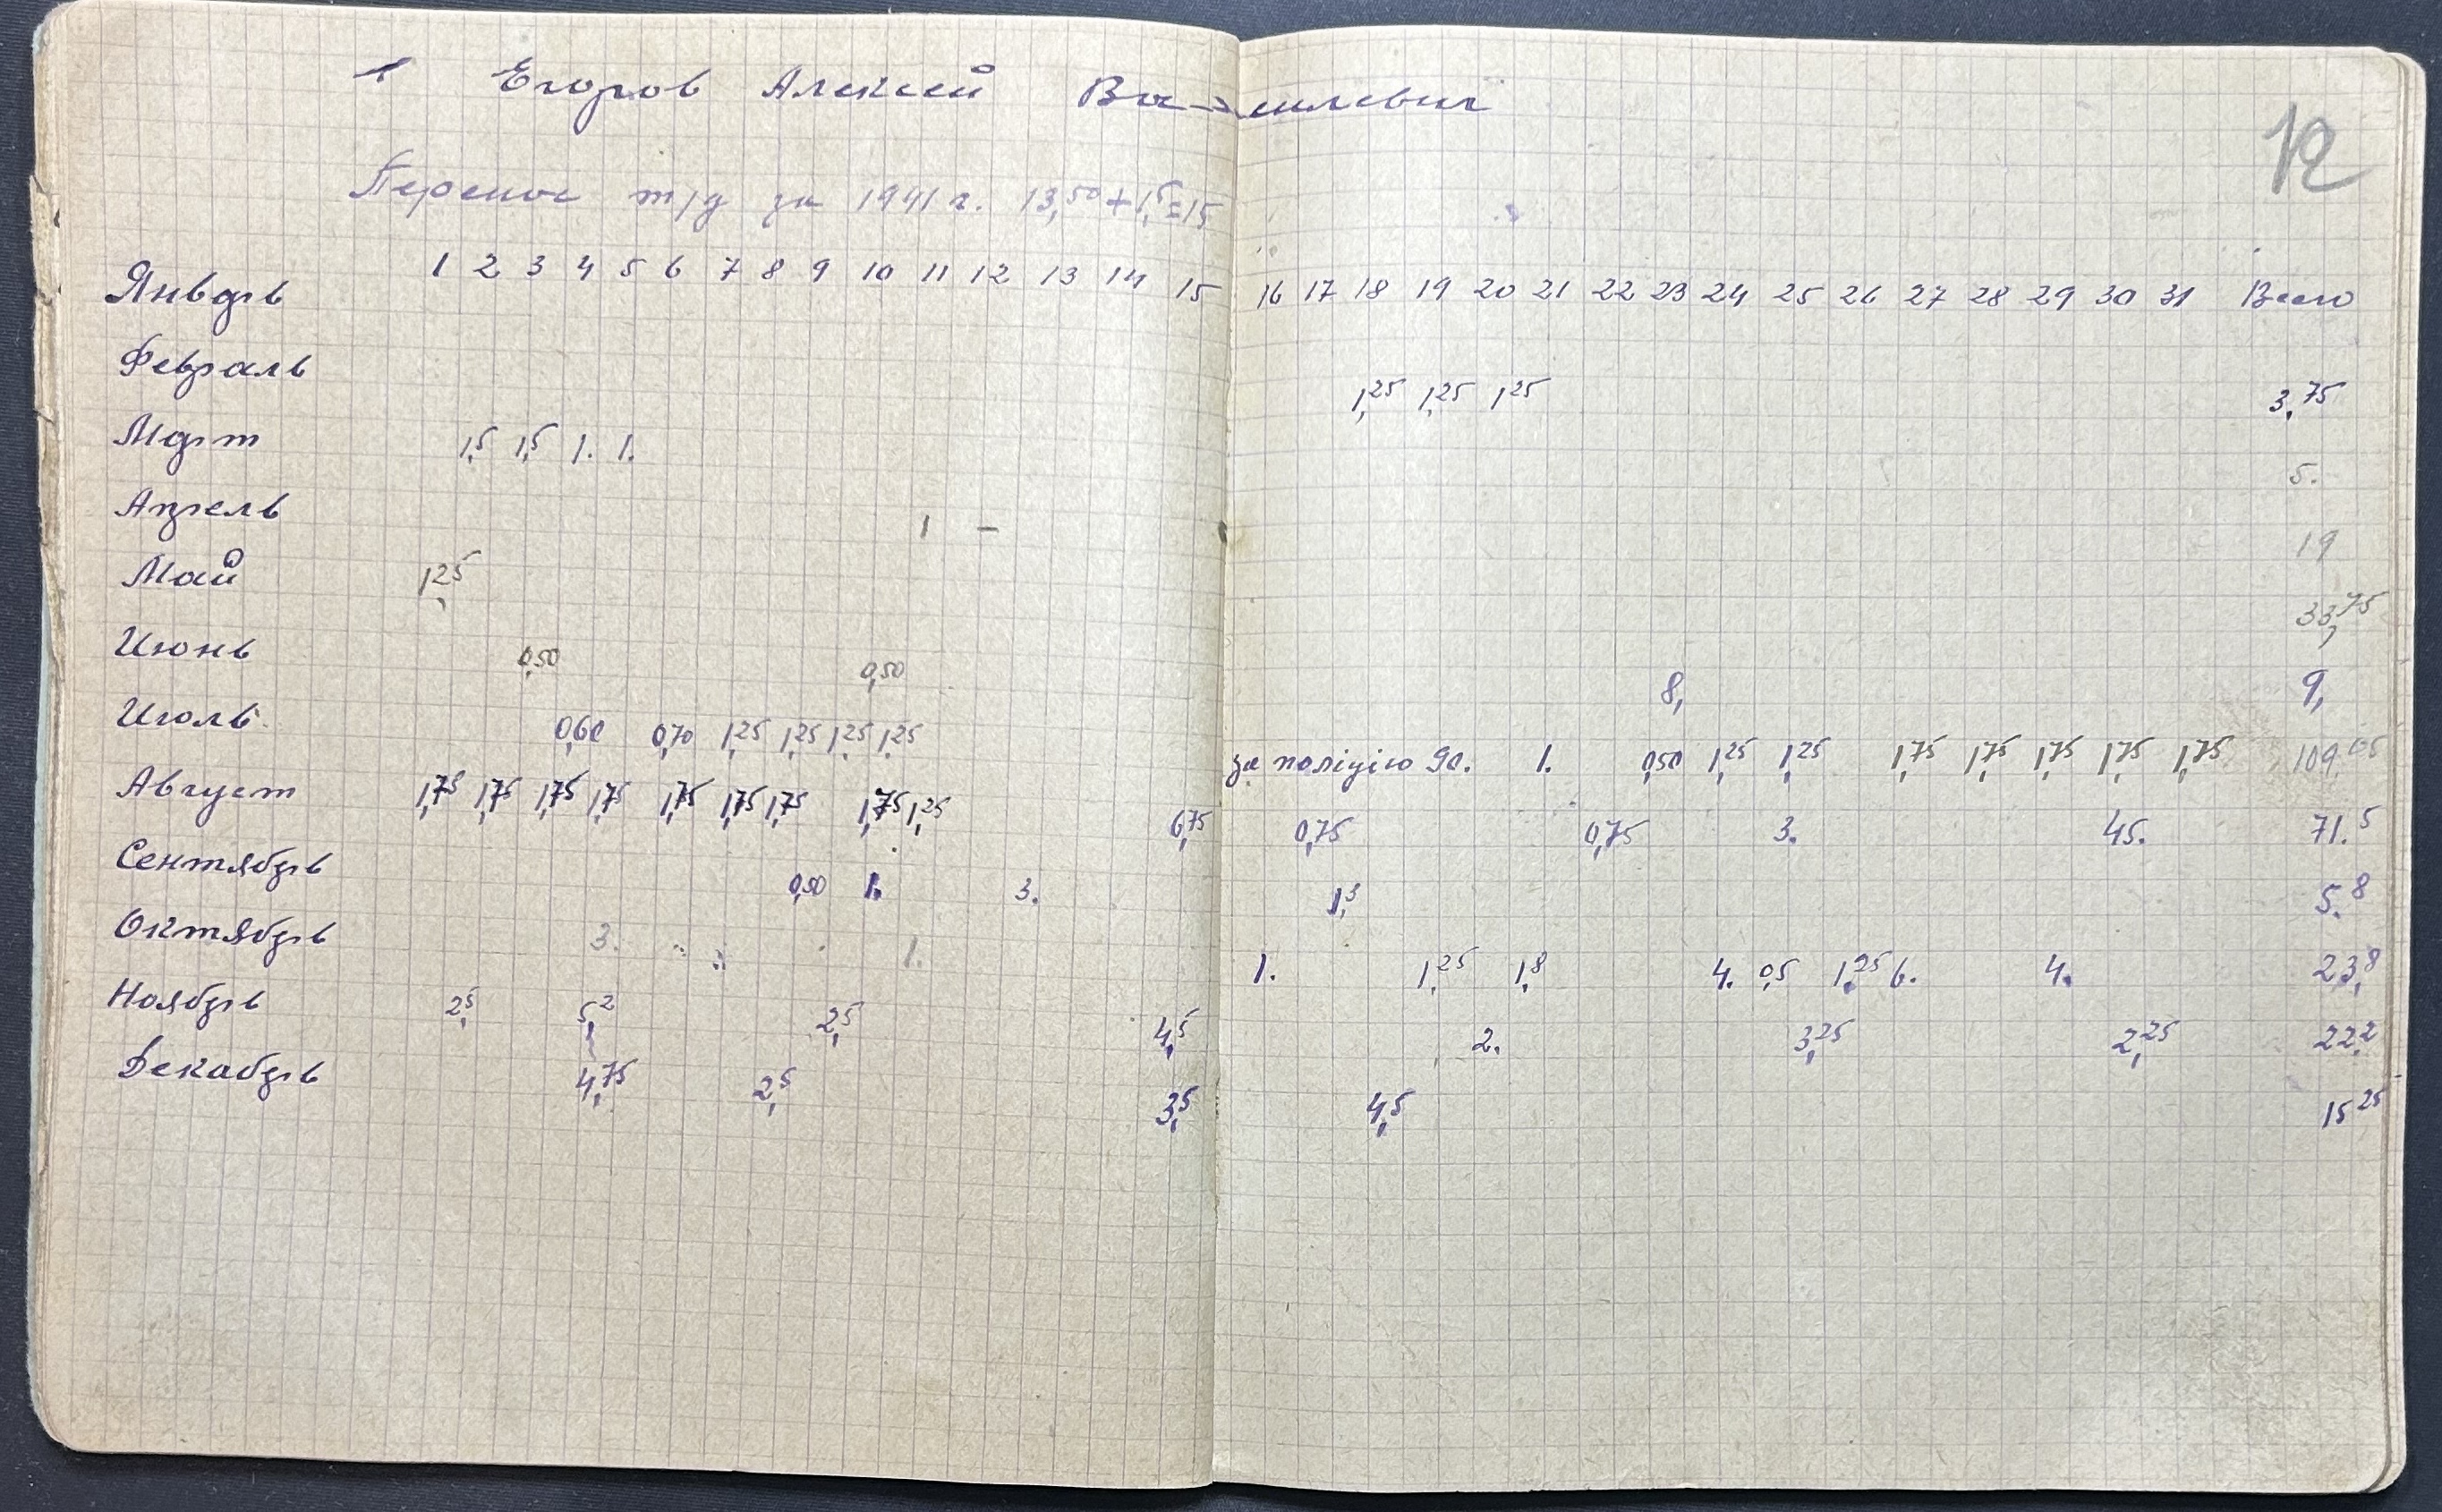 1 Егоров Алексей Василевич
12
Перенос т/д за 1941 г. 13,50 + 1,5 = 15
Январь 1 2 3 4 5 6 7 8 9 10 11 12 13 14 15 16 17 18 19 20 21 22 23 24 25 26 27 28 29 30 31 Всего
Февраль 1,25 1,25 1,25 3,75
Март 1,5 1,5 1. 1. 5.
Апрель 1 - 19
Май 1,25 33,75
Июнь 0,50 0,50 8, 9,
Июль 0,60 0,70 1,25 1,25 1,25 1,25 за поліцію 90. 1. 0,50 1,25 1,25 1,75 1,75 1,75 1,75 1,75 109,05
Август 1,75 1,75 1,75 1,75 1,75 1,75 1,75 1,75 1,25 6,75 0,75 0,75 3. 45. 71.5
Сентябрь 0,50 1. 3. 1,3 5.8
Октябрь 3. 1. 1. 1,25 1,8 4. 0,5 1,25 6. 4. 23,8
Ноябрь 2,5 5,2 2,5 4,5 2. 3,25 2,25 22,2
Декабрь 4,75 2,5 3,5 4,5 15 25